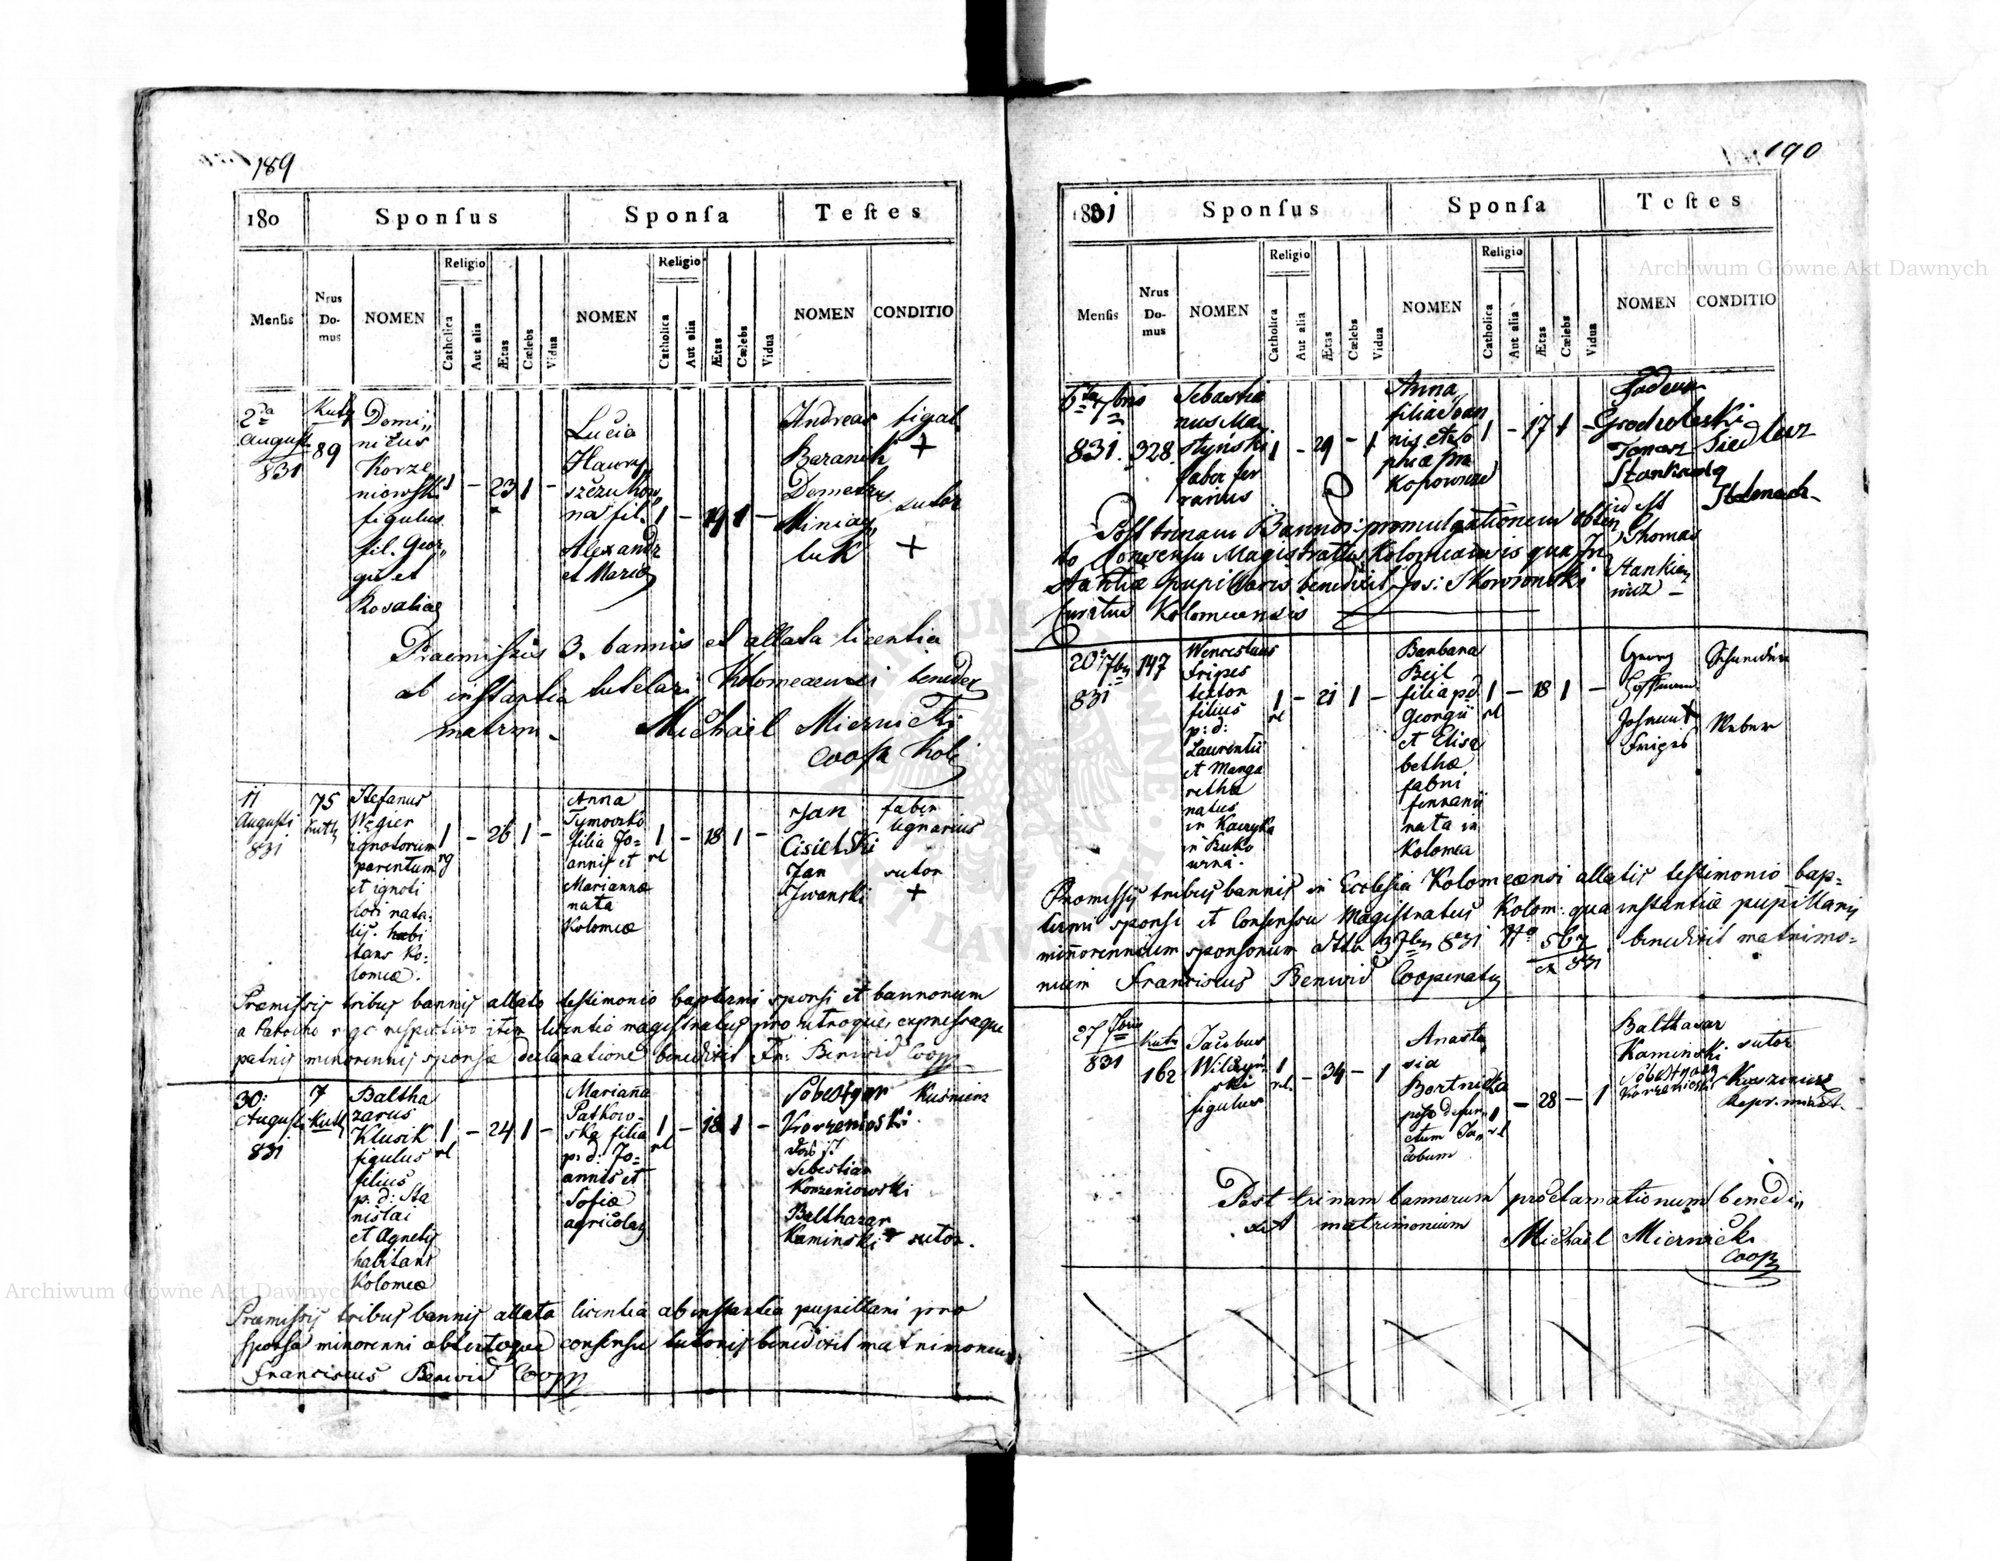 189
180
Sponſus
Sponſa
Teſtes
Menſis
Nrus Do- mus
NOMEN
Religio
Catholica
Aut alia
Ætas
Cœlebs
Vidua
NOMEN
Religio
Catholica
Aut alia
Ætas
Cœlebs
Vidua
NOMEN
CONDITIO
2da
August
831
Kuty
89
Domi„
nicus
Korze
niowski
figulus
fil. Geor„
gii et
Rosaliae
1 - 23 1 -
Lucia
Hawry„
szczukow„
na fil.
Alexandr
et Maria
1 - 19 1 -
Andreas
Baraniuk
Demetrus
Miniay„
luk
figul.
+
sutor
+
Praemissis 3. bannis et allata licentia
ab instantia tutelari Kolomeaensi benedix
matrim.
Michael Miernicki
Coop Kol
11
Augusti
831
75
Kutty
Stefanus
Węgier
ignotorum
parentum
et ignoti
loci nata:
lis. habi
tans Ko:
lomeæ.
1 - 26 1 -
rg
Anna
Tymoczko
filia Jo=
annis et
Mariannæ
nata
Kolomeæ
1 - 18 1 -
rl
Jan
Cisielski
Jan
Iwanski
faber
lignarius
sutor
+
Præmissis tribus bannis allato testimonio baptismi sponsi et bannorum
a Parocho r g c respectivo item licentia magistratus pro utroque, expressaque
patris minorennis sponsæ declaratione benedixit Fr: Benwid Coop
30:
Augusti
831
7
Kutty
Baltha
zarus
Klusik
figulus
filius
p: d: Sta
nislai
et Agnetis
habitans
Kolomeæ
1 - 24 1 -
rl
Marianna
Patkow-
ska filia
p: d: Jo=
annis et
Sofiæ
agricolar
1 - 18 1 -
rl
Sobestyar
Korzenioski
Sebestian
Korzeniowski
Balthazar
Kaminski
Kuśnierz
sutor.
Præmissis tribus bannis allata licentia ab instantia pupillari pro
sponsa minorenni obtentoque consensu tutoris benedixit matrimonium
Franciscus Benwid Coop
190
1831
Sponſus
Sponſa
Teſtes
Menſis
Nrus Do- mus
NOMEN
Religio
Catholica
Aut alia
Ætas
Cœlebs
Vidua
NOMEN
Religio
Catholica
Aut alia
Ætas
Cœlebs
Vidua
NOMEN
CONDITIO
6ta 7bris
831.
328
Sebastia
nus Ma
styński
faber fer
rarius
1 - 29 - 1
Anna
filia Joan
nis et So
phiæ
Kopowicz
1 - 17 1 -
Tadeus
Grocholeski
Tomasz
Stankiewicz
id est
Thomas
Stankie„
wicz -
Siedlarz
Stelmach
Post trinam Bannor: promulgationem obten„
to Consensu Magistratus Kolomeaensis qua In„
stantiæ pupillaris benedixit Jos: Skowronski
Curatus Kolomeensis
20 7br
831
147
Wenceslaus
Fripes
textor
filius
p: d:
Laurentii
et Marga
rethæ
natus
in Kaczyka
in Buko
wina.
1 - 21 1 -
rl
Barbara
Beil
filia p d
Georgii
et Elisa
bethæ
fabri
ferrarii
nata in
Kolomea
1 - 18 1 -
rl
Georg
Hoffmann
Johann +
Fripes
Schneider
Weber
Præmissis tribus bannis in Ecclesia Kolomeænsi allatis testimonio bap=
tismi sponsi et Consensu Magistratus Kolom: qua instantiæ pupillaris
minorennium sponsorum ddto 3 7br 831 No 567 benedixit matrimo=
ex 831
nium Franciscus Benwid Cooperator
27
831
Kuty
162
Jacobus
Wilczyń
ski
figulus
1 - 34 - 1
rl.
Anasta
sia
Bortnicka
post defun„
ctum Ja„
cobum
1 - 28 - 1
rl
Balthasar
Kaminski
Sobestyan
Korzenioski
sutor
Kuszmierz
Post trinam bannorum proclamationum benedi„
xit matrimonium
Michael Miernicki
Coop
Archiwum Główne Akt Dawnych
Archiwum Główne Akt Dawnych